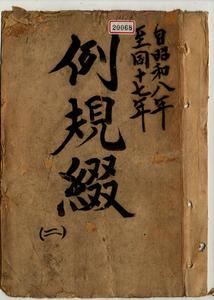 20068
自昭和八年
至同十七年
例規綴
(二)